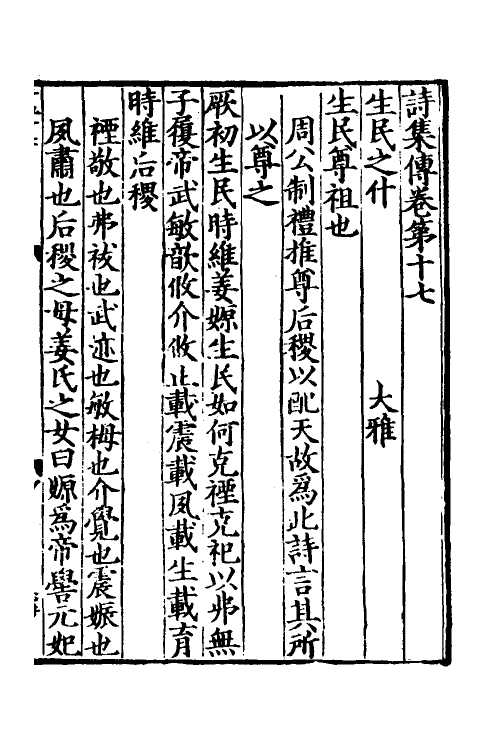 詩集傳卷第十七
生民之什　大雅
生民尊祖也
周公制禮推尊后稷以配天故爲此詩言其所
以尊之
厥初生民時維姜嫄生民如何克禋克祀以弗無
子履帝武敏歆攸介攸止載震載夙載生載育
時維后稷
禋敬也弗祓也武迹也敏拇也介覺也震娠也
夙肅也后稷之母姜氏之女曰嫄爲帝嚳元妃